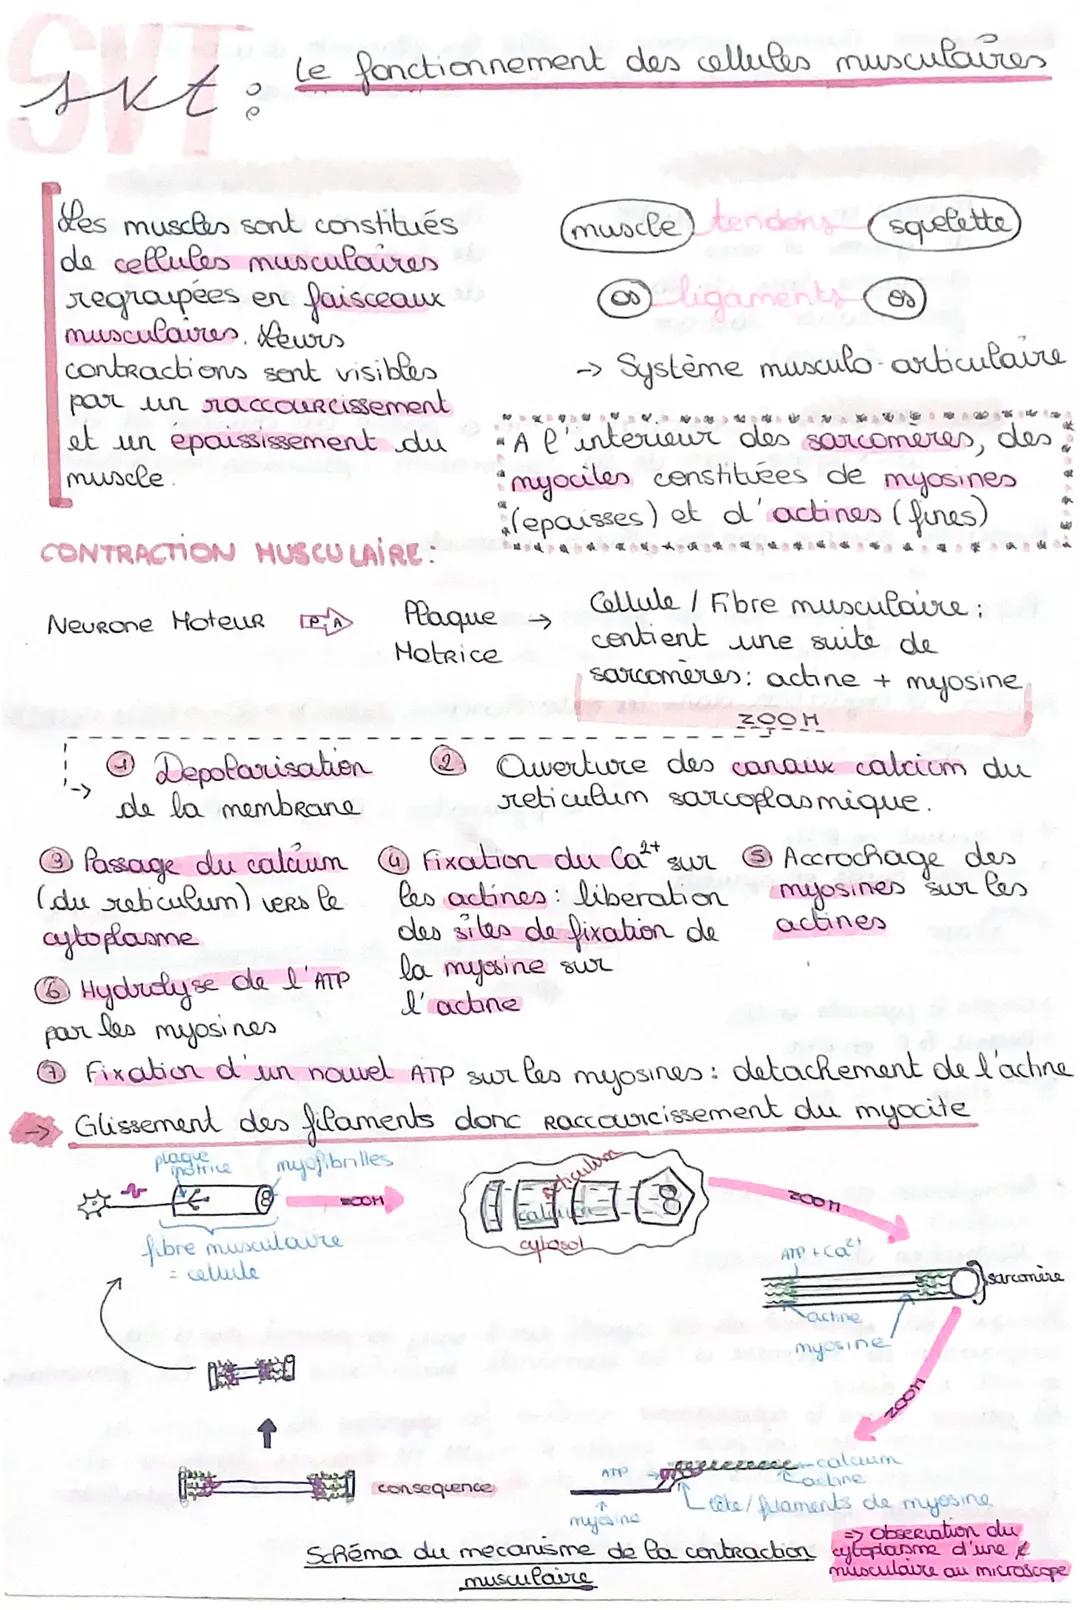 SVT
svt : Le fonctionnement des cellules musculaires
Les muscles sont constitués
de cellules musculaires
regroupées en faisceaux
musculaires. Leurs
contractions sont visibles
par un raccourcissement
et un epaississement du
muscle.
muscle tendons squelette
os ligaments os
-> Système musculo-articulaire
A l'interieur des sarcomeres, des
myocites constituées de myosines
(epaisses) et d'actines (fines)
CONTRACTION MUSCULAIRE :
Neurone Moteur P.A Plaque Motrice → Cellule / Fibre musculaire :
contient une suite de
sarcomères: actine + myosine
ZOOM
-> 1 Depolarisation
de la membrane
2 Ouverture des canaux calcium du
reticulum sarcoplasmique.
3 Passage du calcium
(du reticulum) vers le
cytoplasme
4 Fixation du Ca2+ sur
les actines : liberation
des sîtes de fixation de
la myosine sur
l'actine
5 Accrochage des
myosines sur les
actines
6 Hydrolyse de l'ATP
par les myosines
7 Fixation d'un nouvel ATP sur les myosines : detachement de l'actine
-> Glissement des filaments donc raccourcissement du myocite
plaque
motrice
myofibrilles
ZOOM
fibre musculaire
= cellule
reticulum
calcium
cytosol
ZOOM
ATP + Ca2+
sarcomère
actine
myosine
ZOOM
consequence
ATP
calcium
actine
tête/filaments de myosine
myosine
Schéma du mecanisme de la contraction
musculaire
=> Observation du
cytoplasme d'une
musculaire au microscope